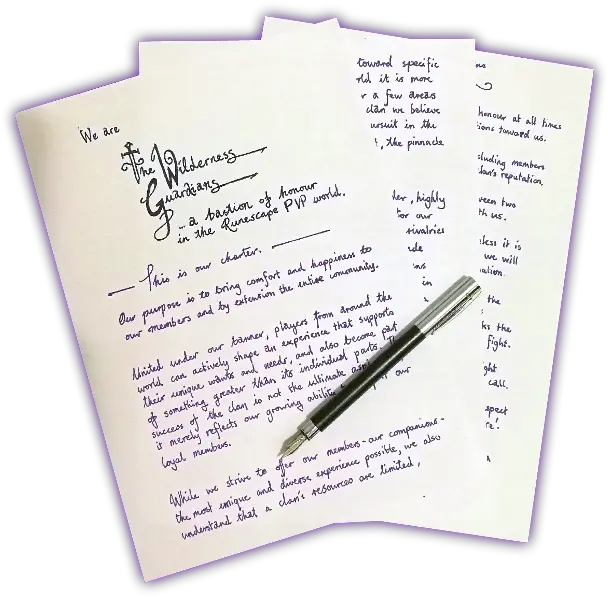 We are
The Wilderness
Guardians
... a bastion of honour
in the Runescape PVP world.
This is our charter.
Our purpose is to bring comfort and happiness to
our members and by extension the entire community.
United under our banner, players from around the
world can actively shape an experience that supports
their unique wants and needs, and also become part
of something greater than its individual parts.
success of the clan is not the ultimate
it merely reflects our growing ability our
loyal members.
While we strive to offer our members - our companions -
the most unique and diverse experience possible, we also
understand that a clan's resources are limited,
toward specific
it is more
a few areas
clan we believe
in the
, the pinnacle
, highly
for our
rivalries
in
honour at all times
toward us.
members
clan's reputation.
two
us.
it is
we will
the
the
fight.
call.